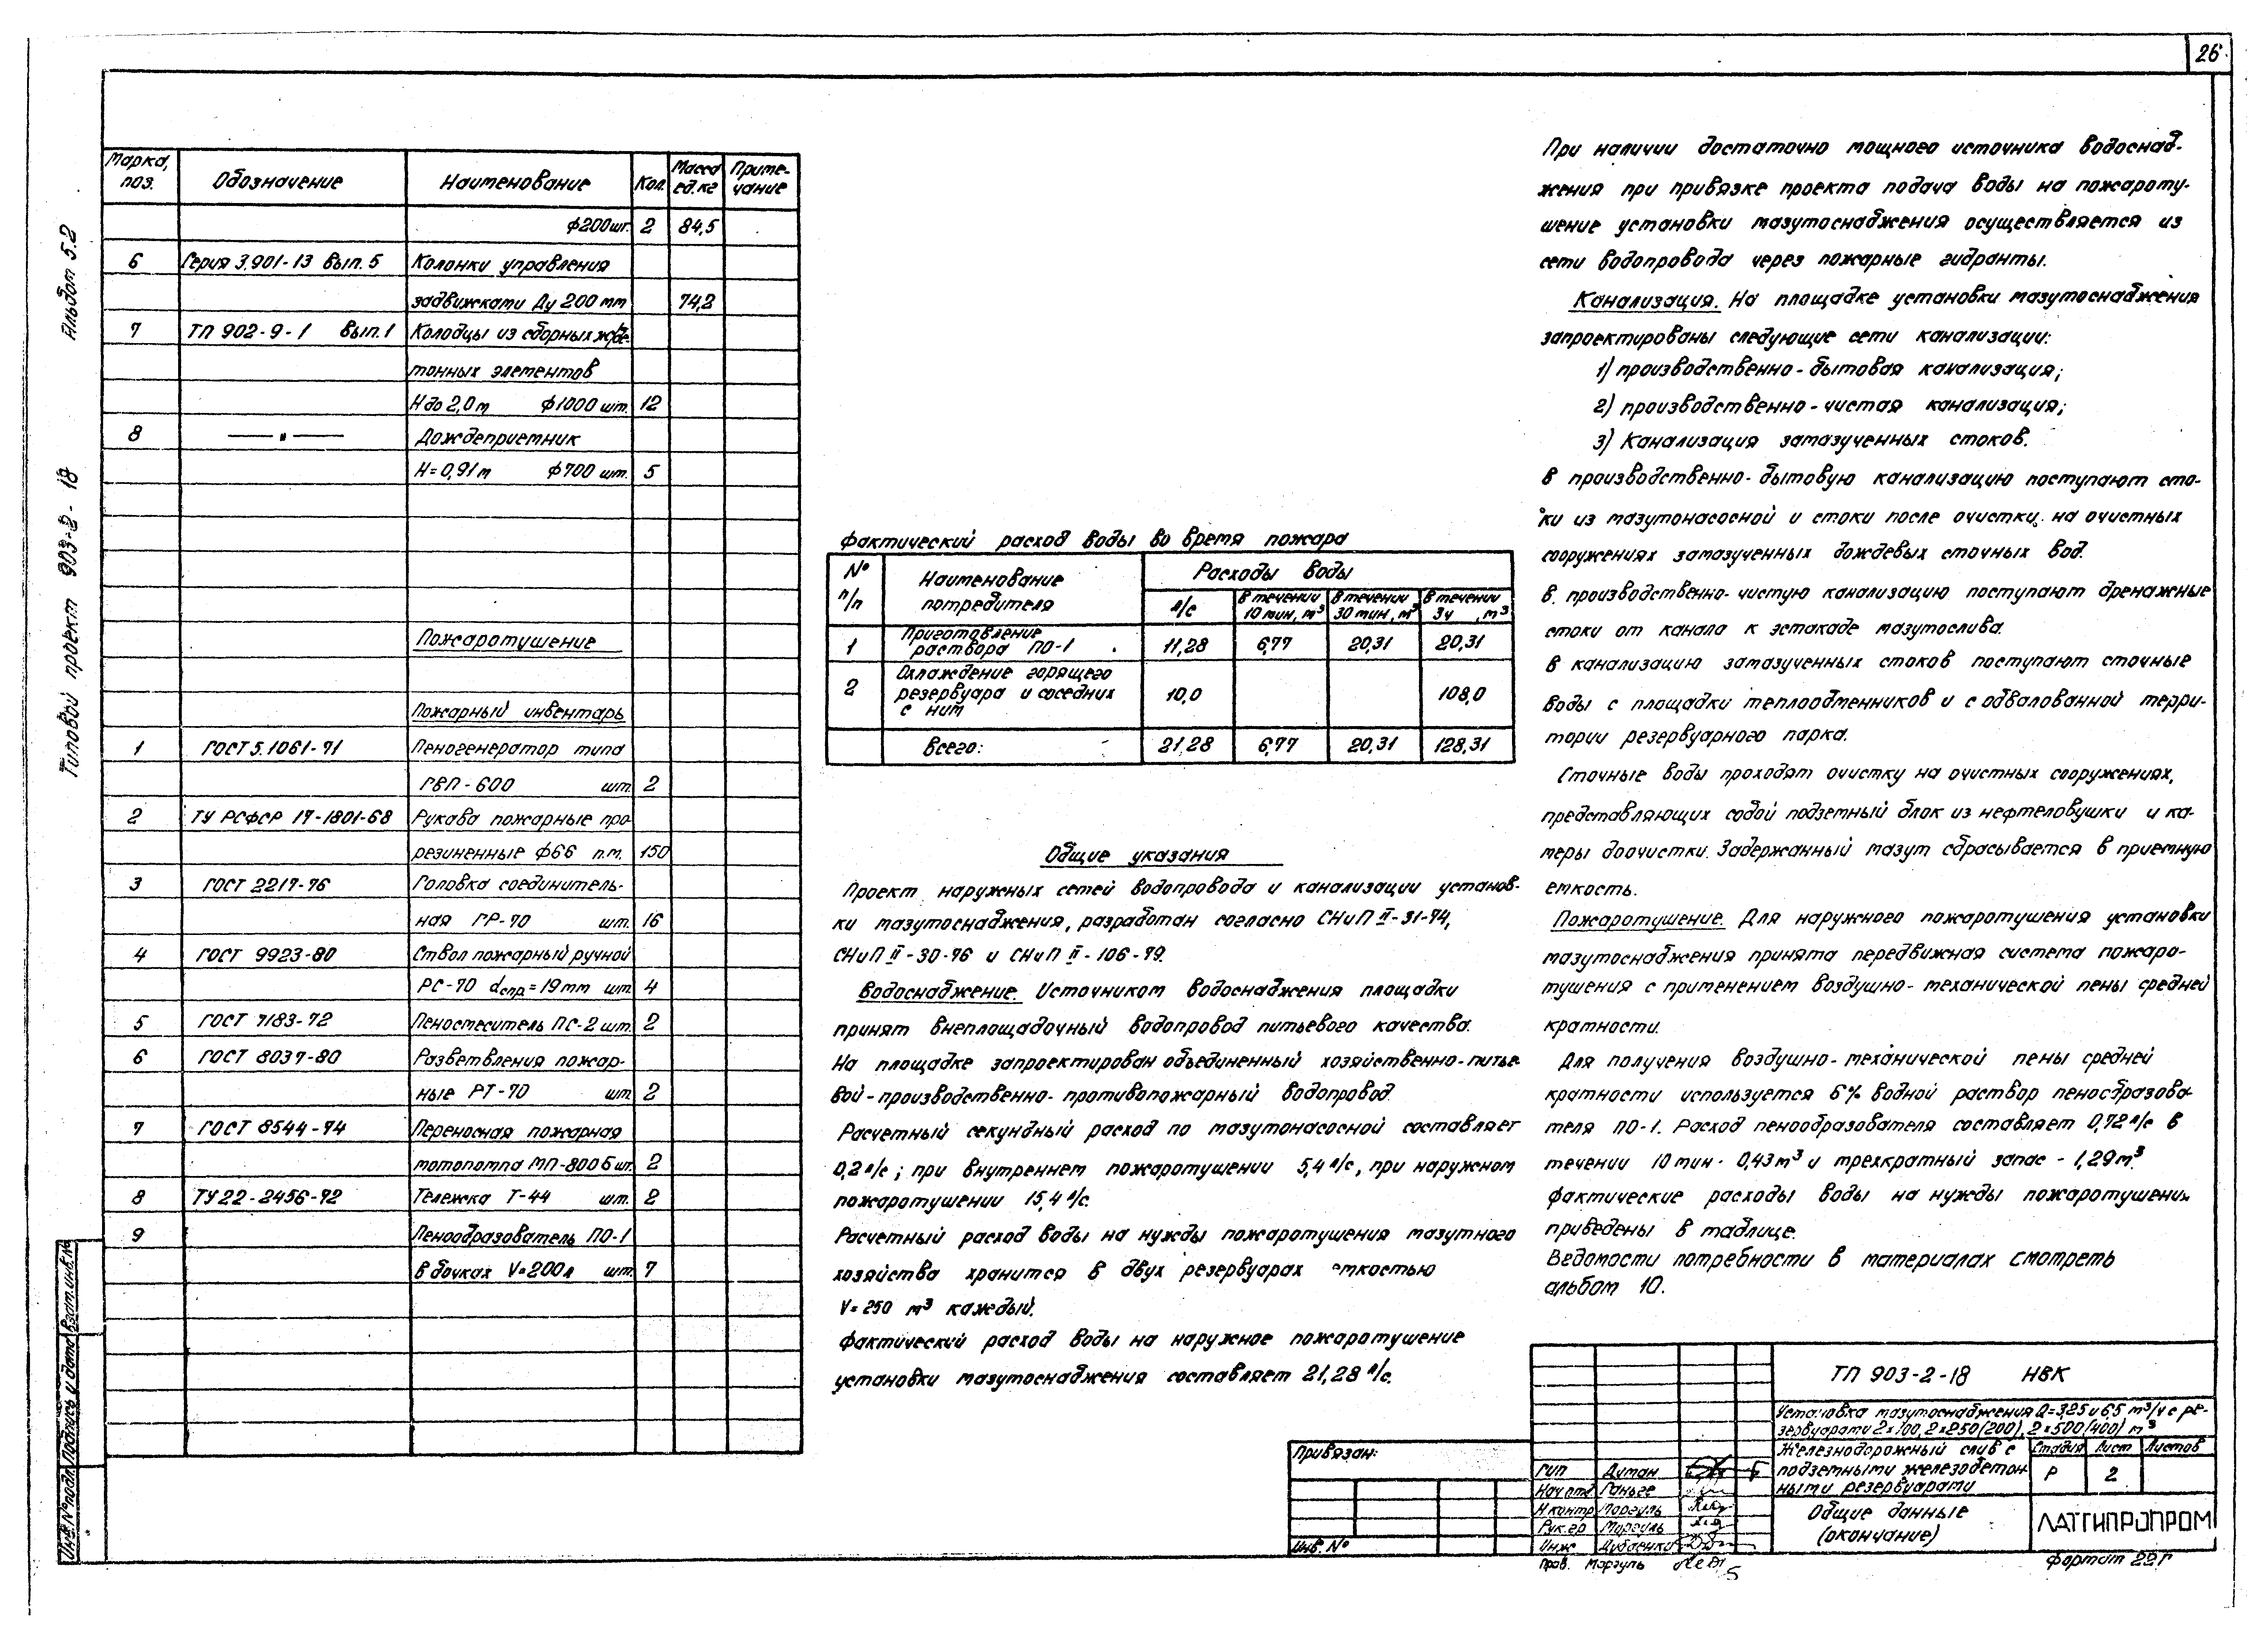 26
Альбом 5.2
Типовой проект 903-2-18
Марка, поз. Обозначение Наименование Кол. Масса ед. кг Примечание
ф200 шт. 2 84,5
6 Серия 3.901-13 Вып. 5 Колонки управления
задвижками Ду 200 мм 74,2
7 ТП 902-9-1 Вып. 1 Колодцы из сборных ж/бе-
тонных элементов
H до 2,0 м ф1000 шт. 12
8 —〃— Дождеприемник
H=0,91 м ф700 шт. 5
Пожаротушение
Пожарный инвентарь
1 ГОСТ 5.1061-71 Пеногенератор типа
ГВП-600 шт 2
2 ТУ РСФСР 17-1801-68 Рукава пожарные про-
резиненные ф66 п.м. 150
3 ГОСТ 2217-76 Головка соединитель-
ная ГР-70 шт. 16
4 ГОСТ 9923-80 Ствол пожарный ручной
РС-70 dспр=19мм шт. 4
5 ГОСТ 7183-72 Пеносмеситель ПС-2 шт. 2
6 ГОСТ 8037-80 Разветвления пожар-
ные РТ-70 шт 2
7 ГОСТ 8544-74 Переносная пожарная
мотопомпа МП-800Б шт. 2
8 ТУ 22-2456-72 Тележка Т-44 шт. 2
9 Пенообразователь ПО-1
в бочках V=200л шт. 7
Фактический расход воды во время пожара
№ п/п Наименование потребителя Расходы воды
л/с В течении 10 мин, м³ В течении 30 мин, м³ В течении 3ч, м³
1 Приготовление раствора ПО-1 11,28 6,77 20,31 20,31
2 Охлаждение горящего резервуара и соседних с ним 10,0 108,0
Всего: 21,28 6,77 20,31 128,31
Общие указания
Проект наружных сетей водопровода и канализации установ-
ки мазутоснабжения, разработан согласно СНиП II-31-74,
СНиП II-30-76 и СНиП II-106-79.
Водоснабжение. Источником водоснабжения площадки
принят внеплощадочный водопровод питьевого качества.
На площадке запроектирован объединенный хозяйственно-питье-
вой-производственно-противопожарный водопровод
Расчетный секундный расход по мазутонасосной составляет
0,2 л/с; при внутреннем пожаротушении 5,4 л/с, при наружном
пожаротушении 15,4 л/с.
Расчетный расход воды на нужды пожаротушения мазутного
хозяйства хранится в двух резервуарах емкостью
V=250 м³ каждый.
Фактический расход воды на наружное пожаротушение
установки мазутоснабжения составляет 21,28 л/с.
При наличии достаточно мощного источника водоснаб-
жения при привязке проекта подача воды на пожароту-
шение установки мазутоснабжения осуществляется из
сети водопровода через пожарные гидранты.
Канализация. На площадке установки мазутоснабжения
запроектированы следующие сети канализации:
1) производственно-бытовая канализация;
2) производственно-чистая канализация;
3) канализация замазученных стоков.
В производственно-бытовую канализацию поступают сто-
ки из мазутонасосной и стоки после очистки на очистных
сооружениях замазученных дождевых сточных вод.
В производственно-чистую канализацию поступают дренажные
стоки от канала к эстакаде мазутослива.
В канализацию замазученных стоков поступают сточные
воды с площадки теплообменников и с обвалованной терри-
тории резервуарного парка.
Сточные воды проходят очистку на очистных сооружениях,
представляющих собой подземный блок из нефтеловушки и ка-
меры доочистки. Задержанный мазут сбрасывается в приемную
емкость.
Пожаротушение. Для наружного пожаротушения установки
мазутоснабжения принята передвижная система пожаро-
тушения с применением воздушно-механической пены средней
кратности.
Для получения воздушно-механической пены средней
кратности используется 6% водной раствор пенообразова-
теля ПО-1. Расход пенообразователя составляет 0,72 л/с в
течении 10 мин - 0,43 м³ и трехкратный запас - 1,29 м³
Фактические расходы воды на нужды пожаротушения
приведены в таблице.
Ведомости потребности в материалах смотреть
альбом 10.
ТП 903-2-18 НВК
Установка мазутоснабжения Q=3,25 и 6,5 м³/ч с ре-
зервуарами 2×100, 2×250(200), 2×500(400) м³
Железнодорожный слив с
подземными железобетон-
ными резервуарами
Стадия Лист Листов
Р 2
Общие данные
(окончание)
ЛАТГИПРОПРОМ
Формат 22Г
Привязан:
Инв. №
ГИП Диман
Нач. отд Ганьге
Н контр Моргуль
Рук. гр Моргуль
Инж
Пров. Моргуль
Инв. № подл. Подпись и дата Взам. инв. №